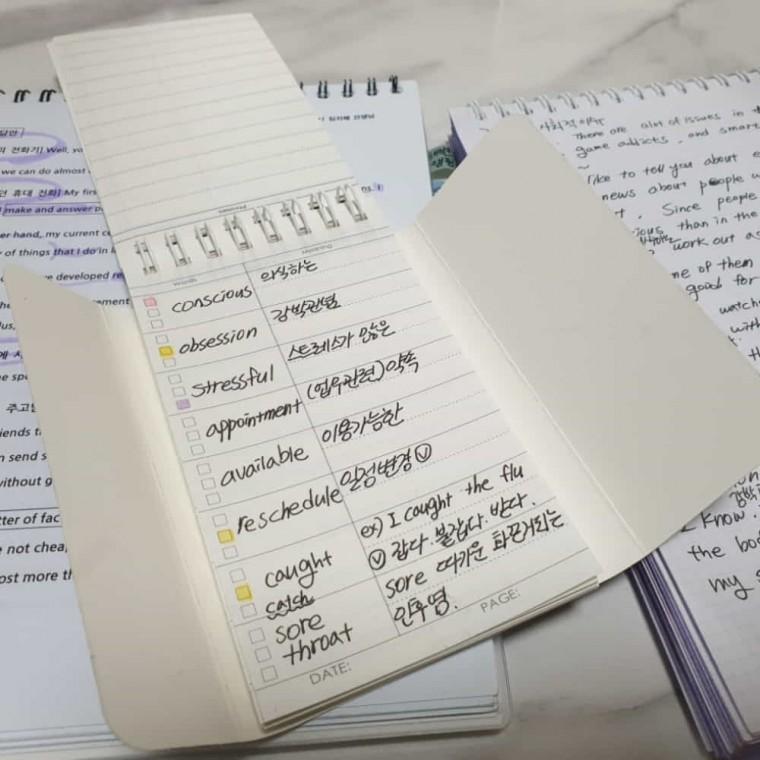 Words Meaning
conscious 의식하는
obsession 강박관념
stressful 스트레스가 많은
appointment (업무관련)약속
available 이용가능한
reschedule 일정변경 ⓥ
caught ex) I caught the flu
catch ⓥ 잡다. 붙잡다. 받다.
sore sore 따가운 화끈거리는
throat 인후염.
DATE: PAGE:
전화기] Well, yo
we can do almost
휴대 전화] My firs
make and answer
er hand, my current ce
of things that I do in
e developed re
ement
lus,
he spe
주고
iends t
n send s
without g
tter of fac
e not chea
ost more th
There are alot of issues in t
game addicts, and smart
like to tell you about e
news about people w
t. Since people
than in the
work out as
me of them
good for
watch
with
know.
the bod
my s